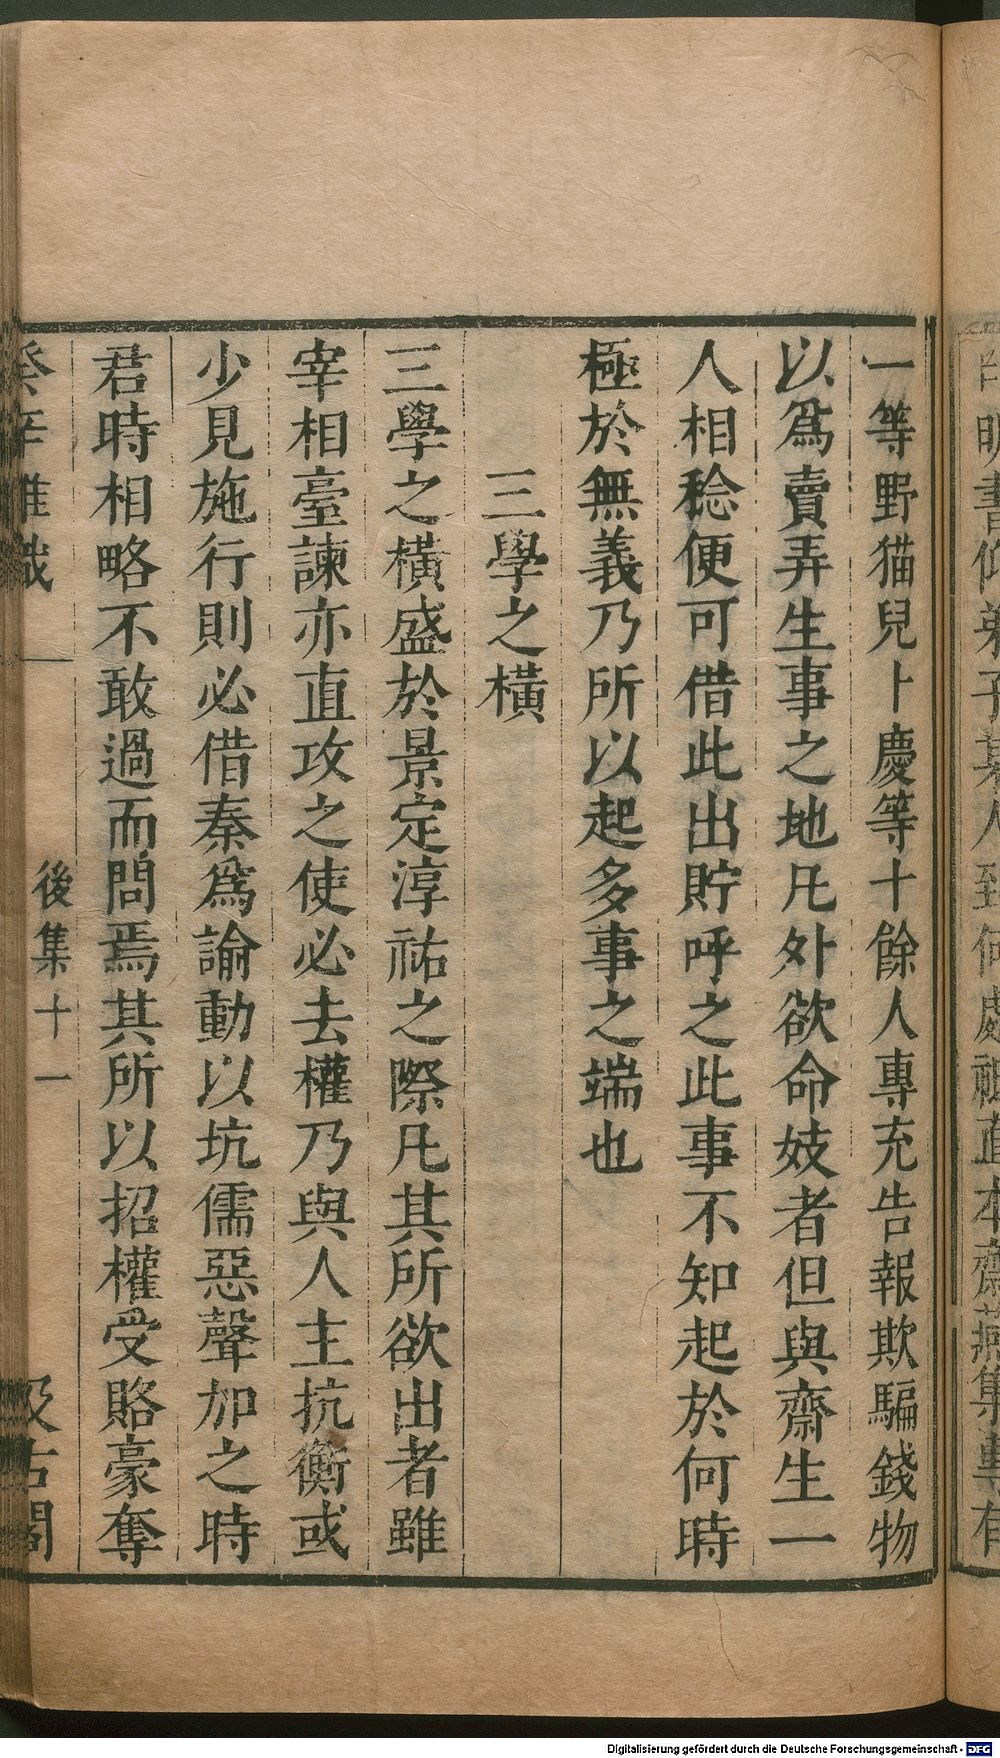 一等野猫兒卜慶等十餘人專充告報欺騙錢物
以爲賣弄生事之地凡外欲命妓者但與齋生一
人相稔便可借此出貯呼之此事不知起於何時
極於無義乃所以起多事之端也
三學之橫
三學之橫盛於景定淳祐之際凡其所欲出者雖
宰相臺諫亦直攻之使必去權乃與人主抗衡或
少見施行則必借秦爲諭動以坑儒惡聲加之時
君時相略不敢過而問焉其所以招權受賂豪奪
癸辛雜識
後集十一
汲古閣
Digitalisierung gefördert durch die Deutsche Forschungsgemeinschaft - DFG